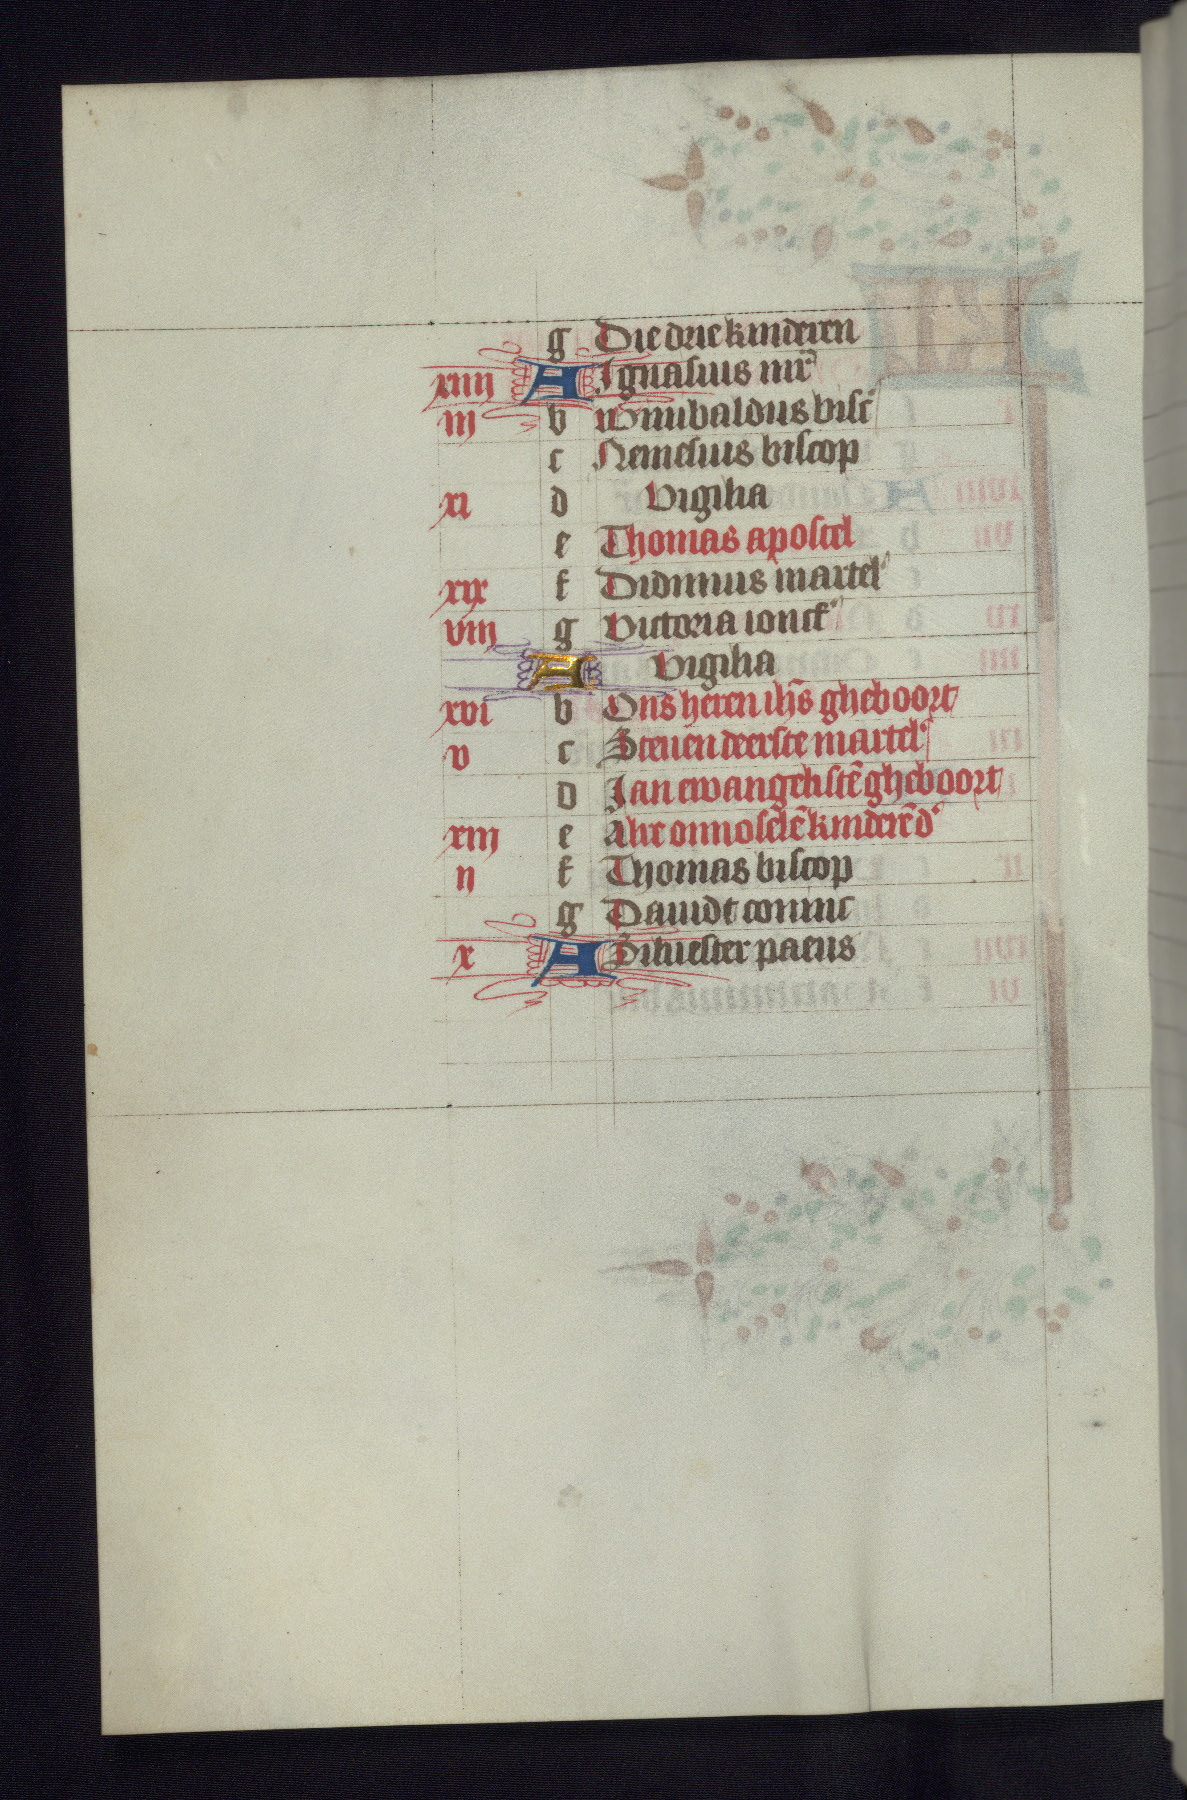 g Die drie kinderen
xiiij A Ignasius mr̄
iij b Wnnibaldus bisc̄
c Nemesius biscop
xi d Vigilia
e Thomas apostel
xix f Didimus martel'
viij g Victoria ioncf'
A Vigilia
xvi b Ons heren ih̄s gheboort
v c Steuen deerste martel'
d Jan ewangelistē gheboort
xiij e Alre onnoselē kinderē d'
ij f Thomas biscop
g Dauidt coninc
x A Siluester paeus